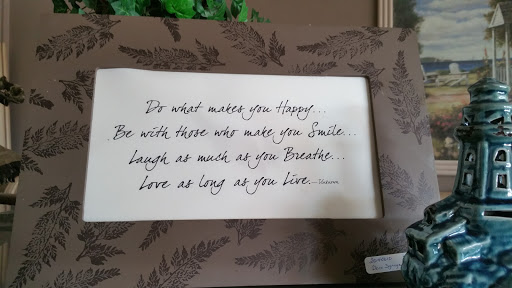 Do what makes you Happy...
Be with those who make you Smile...
Laugh as much as you Breathe...
Love as long as you Live.